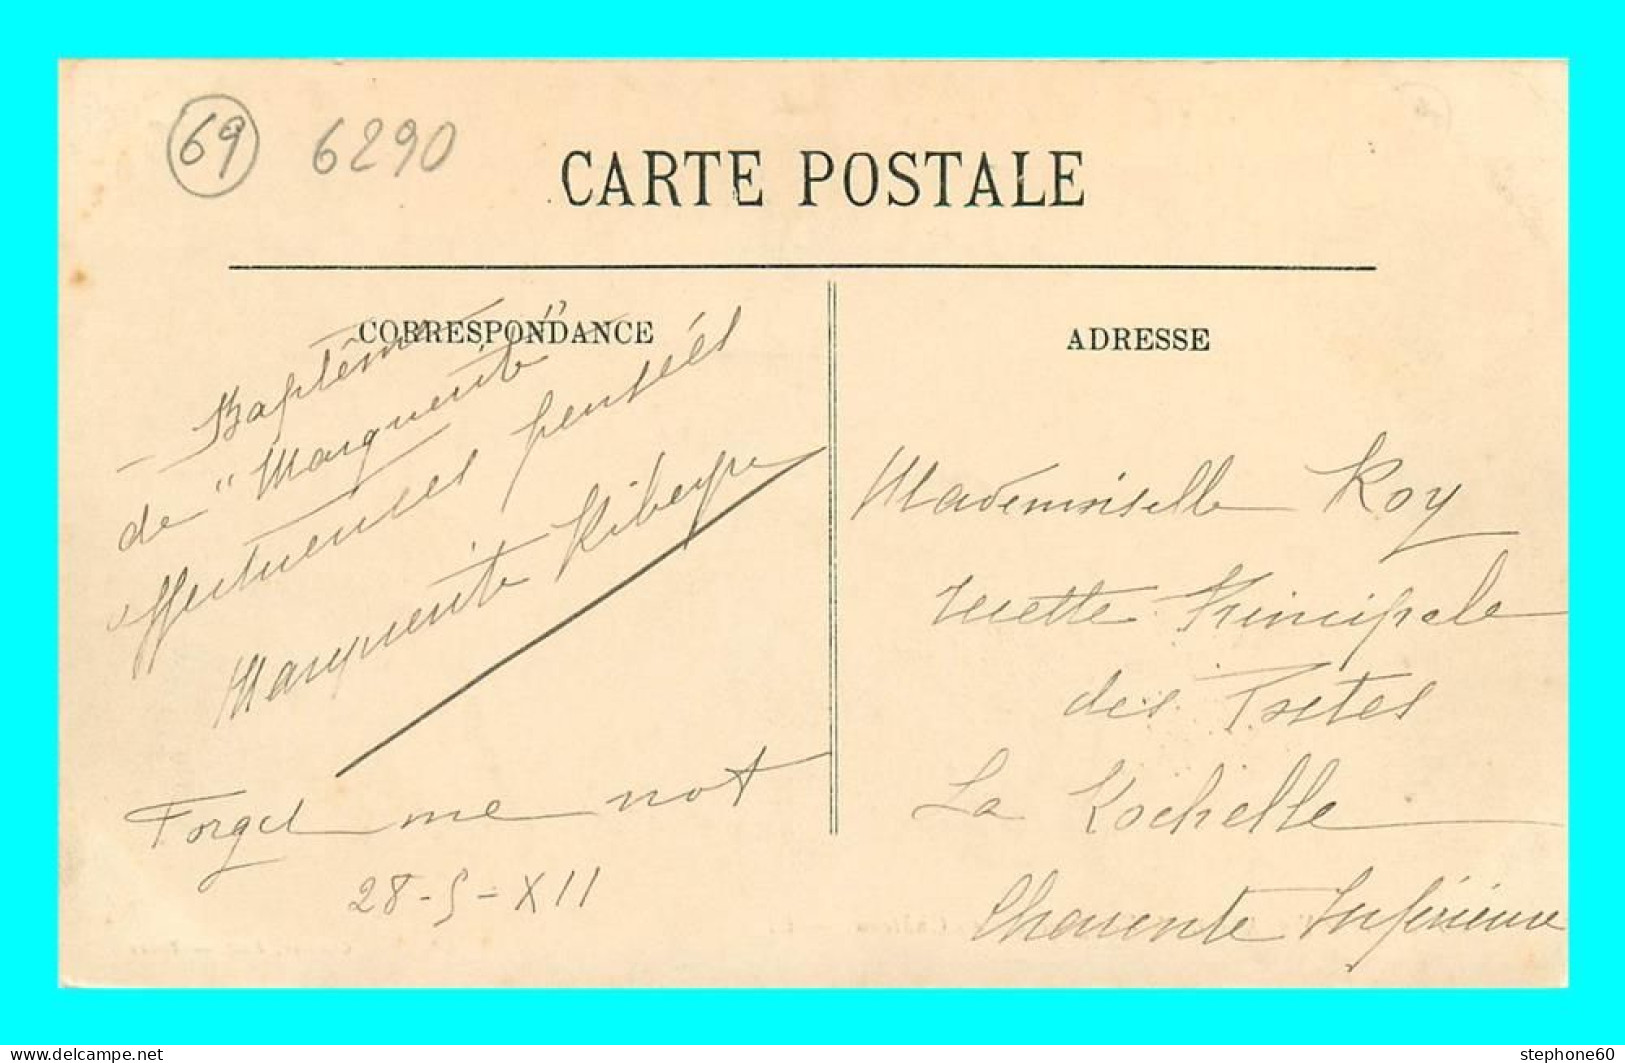 69 6290
CARTE POSTALE
CORRESPONDANCE
Baptême
de "Marguerite"
affectueuses pensées
Marguerite Ribeyre
Forget me not
28-5-XII
ADRESSE
Mademoiselle Roy
Recette Principale
des Postes
La Rochelle
Charente Inférieure
stephone60